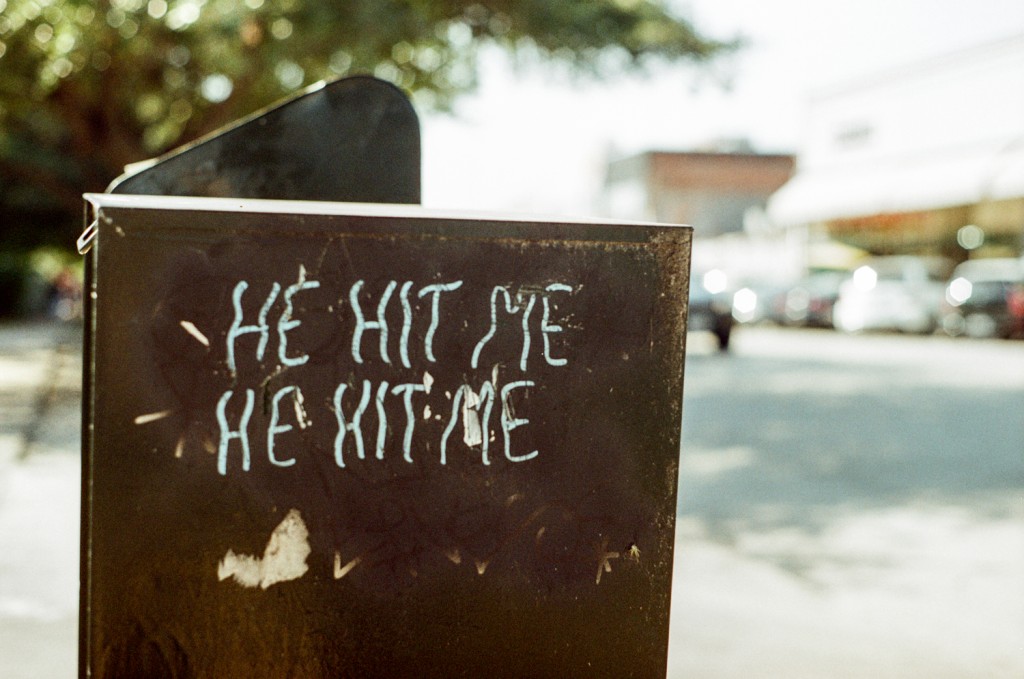 HE HIT ME
HE HIT ME